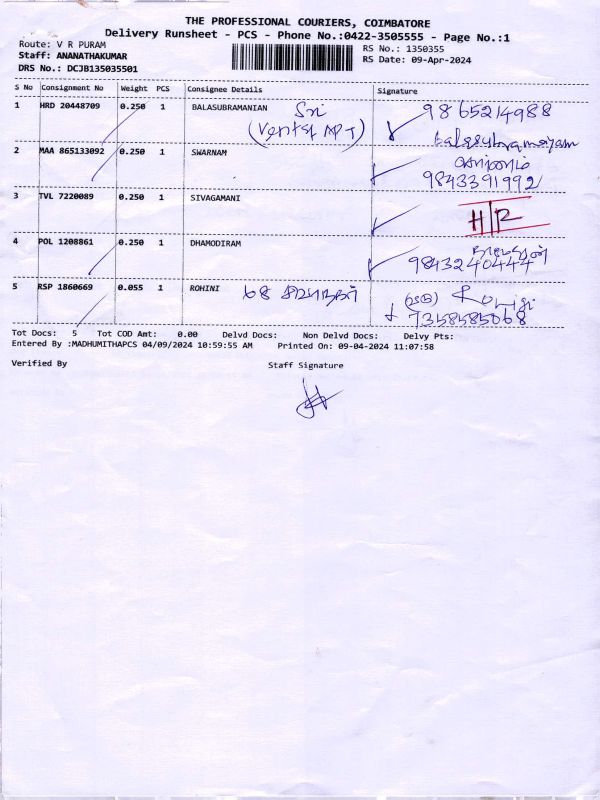 THE PROFESSIONAL COURIERS, COIMBATORE
Delivery Runsheet - PCS - Phone No.:0422-3505555 - Page No.:1
Route: V R PURAM
RS No.: 1350355
Staff: ANANATHAKUMAR
RS Date: 09-Apr-2024
DRS No.: DCJB135035501
S No Consignment No Weight PCS Consignee Details Signature
1 HRD 20448709 0.250 1 BALASUBRAMANIAN Sri 9865214988
balasubramaniyam
2 MAA 865133092 0.250 1 SWARNAM
9843391992
3 TVL 7220089 0.250 1 SIVAGAMANI H/R
4 POL 1208861 0.250 1 DHAMODIRAM
9843240444
5 RSP 1860669 0.055 1 ROHINI 68
7358585068
Tot Docs: 5 Tot COD Amt: 0.00 Delvd Docs: Non Delvd Docs: Delvy Pts:
Entered By :MADHUMITHAPCS 04/09/2024 10:59:55 AM Printed On: 09-04-2024 11:07:58
Verified By Staff Signature